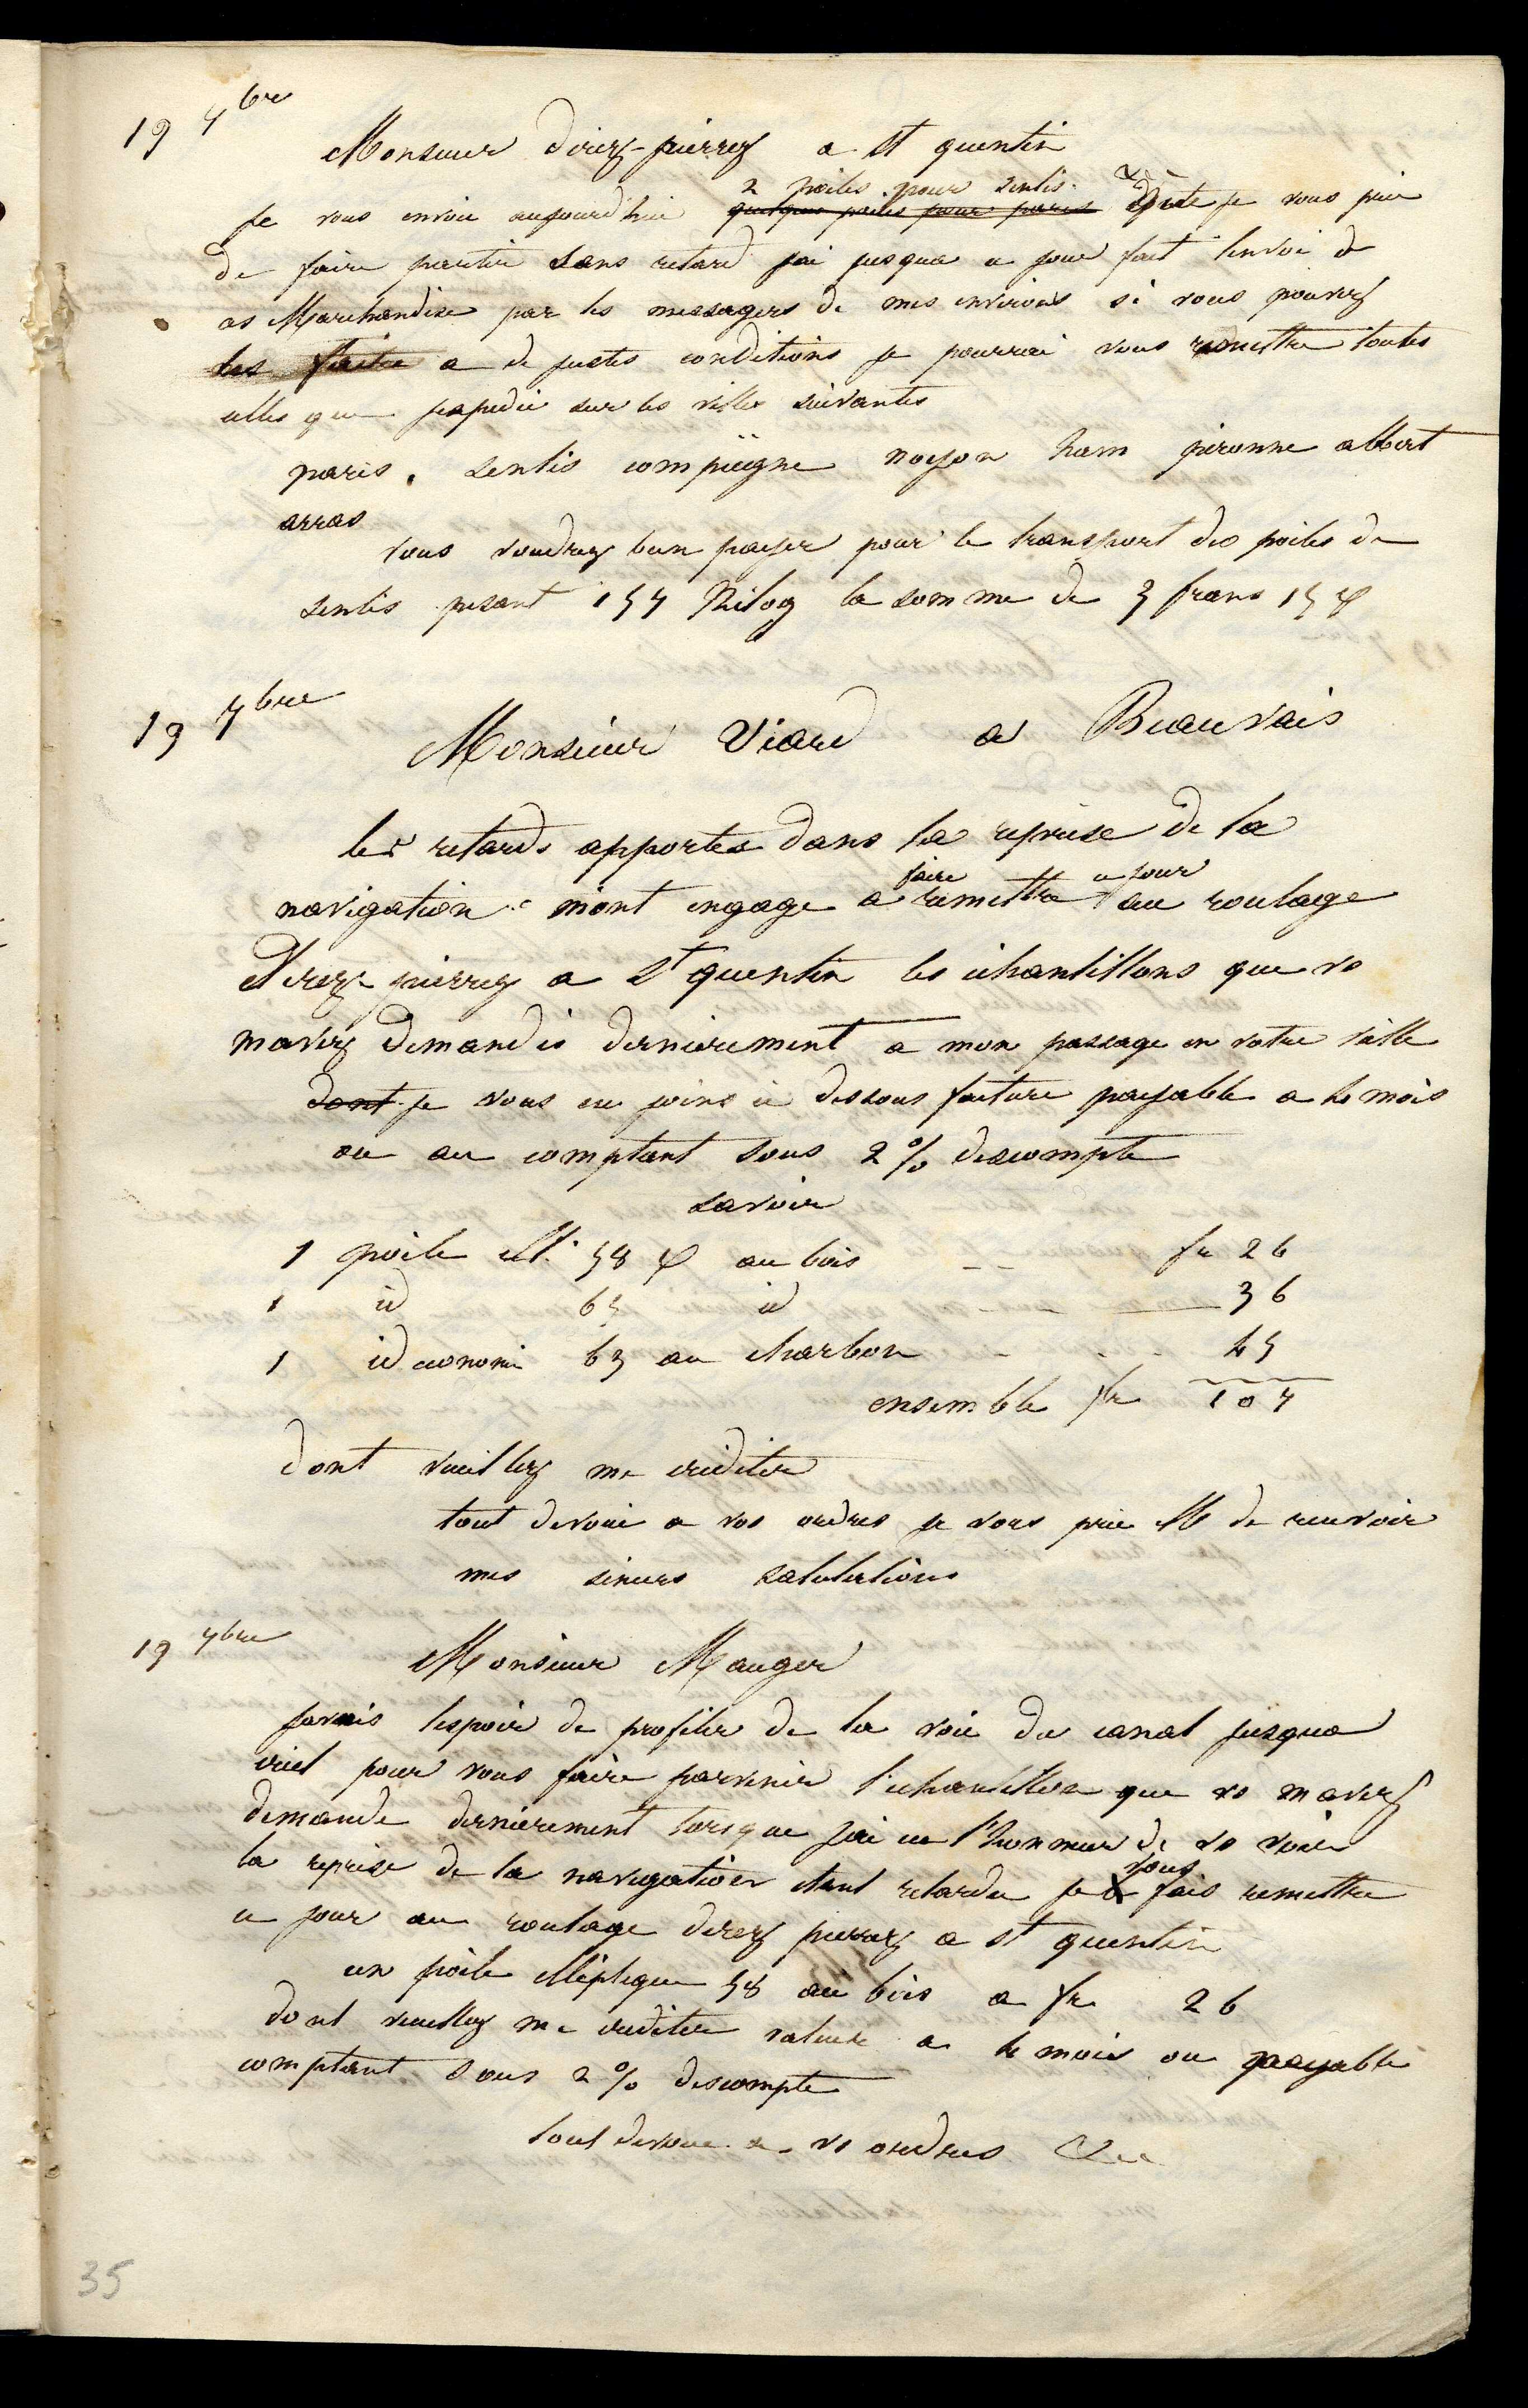 19 7bre
Monsieur direz-pierrez a St quentin
2 poiles pour senlis
Je vous envoie aujourd'hui quelques poiles pour paris que je vous prie
de faire partir sans retard jai jusqua ce jour fait lenvoi de
ces Marchandise par les messagers de mes environs si vous pouvez
les faire a de justes conditions je pourrai vous remettre toutes
celles que jexpedie sur les villes suivantes
paris, senlis compiegne noyon ham péronne albert
arras
vous voudrez bien payer pour le transport des poiles de
senlis pesant 157 Kilog la somme de 3 francs 15 c
19 7bre
Monsieur Viard a Beauvais
les retards apportes dans la reprise de la
faire ce jour
navigation mont engage a remettre au roulage
direz-pierrez a St quentin les echantillons que vs
mavez demandés dernierement a mon passage en votre ville
dont je vous en joins ci dessous facture payable a 4 mois
ou au comptant sous 2 % descompte
savoir
1 poile ell. 58 c au bois fr 26
1 id 65 id 36
1 id econom 63 au charbon 45
ensemble fr 107
dont veuillez me crediter
tout devoué a vos ordres je vous prie M de recevoir
mes sinceres salutations
19 7bre
Monsieur Mauger
javais lespoir de profiter de la voie du canal jusqua
creil pour vous faire parvenir l'echantillon que vs mavez
demande dernierement lorsque jai eu l'honneur de vs voir
vous
la reprise de la navigation etant retardee je fais remettre
ce jour au roulage direz pierrez a St quentin
un poile elleptique 58 au bois a fr 26
dont veuillez me crediter valeur a 4 mois ou payable
comptant sous 2 % descompte
tout devoue a vs ordres &c
35